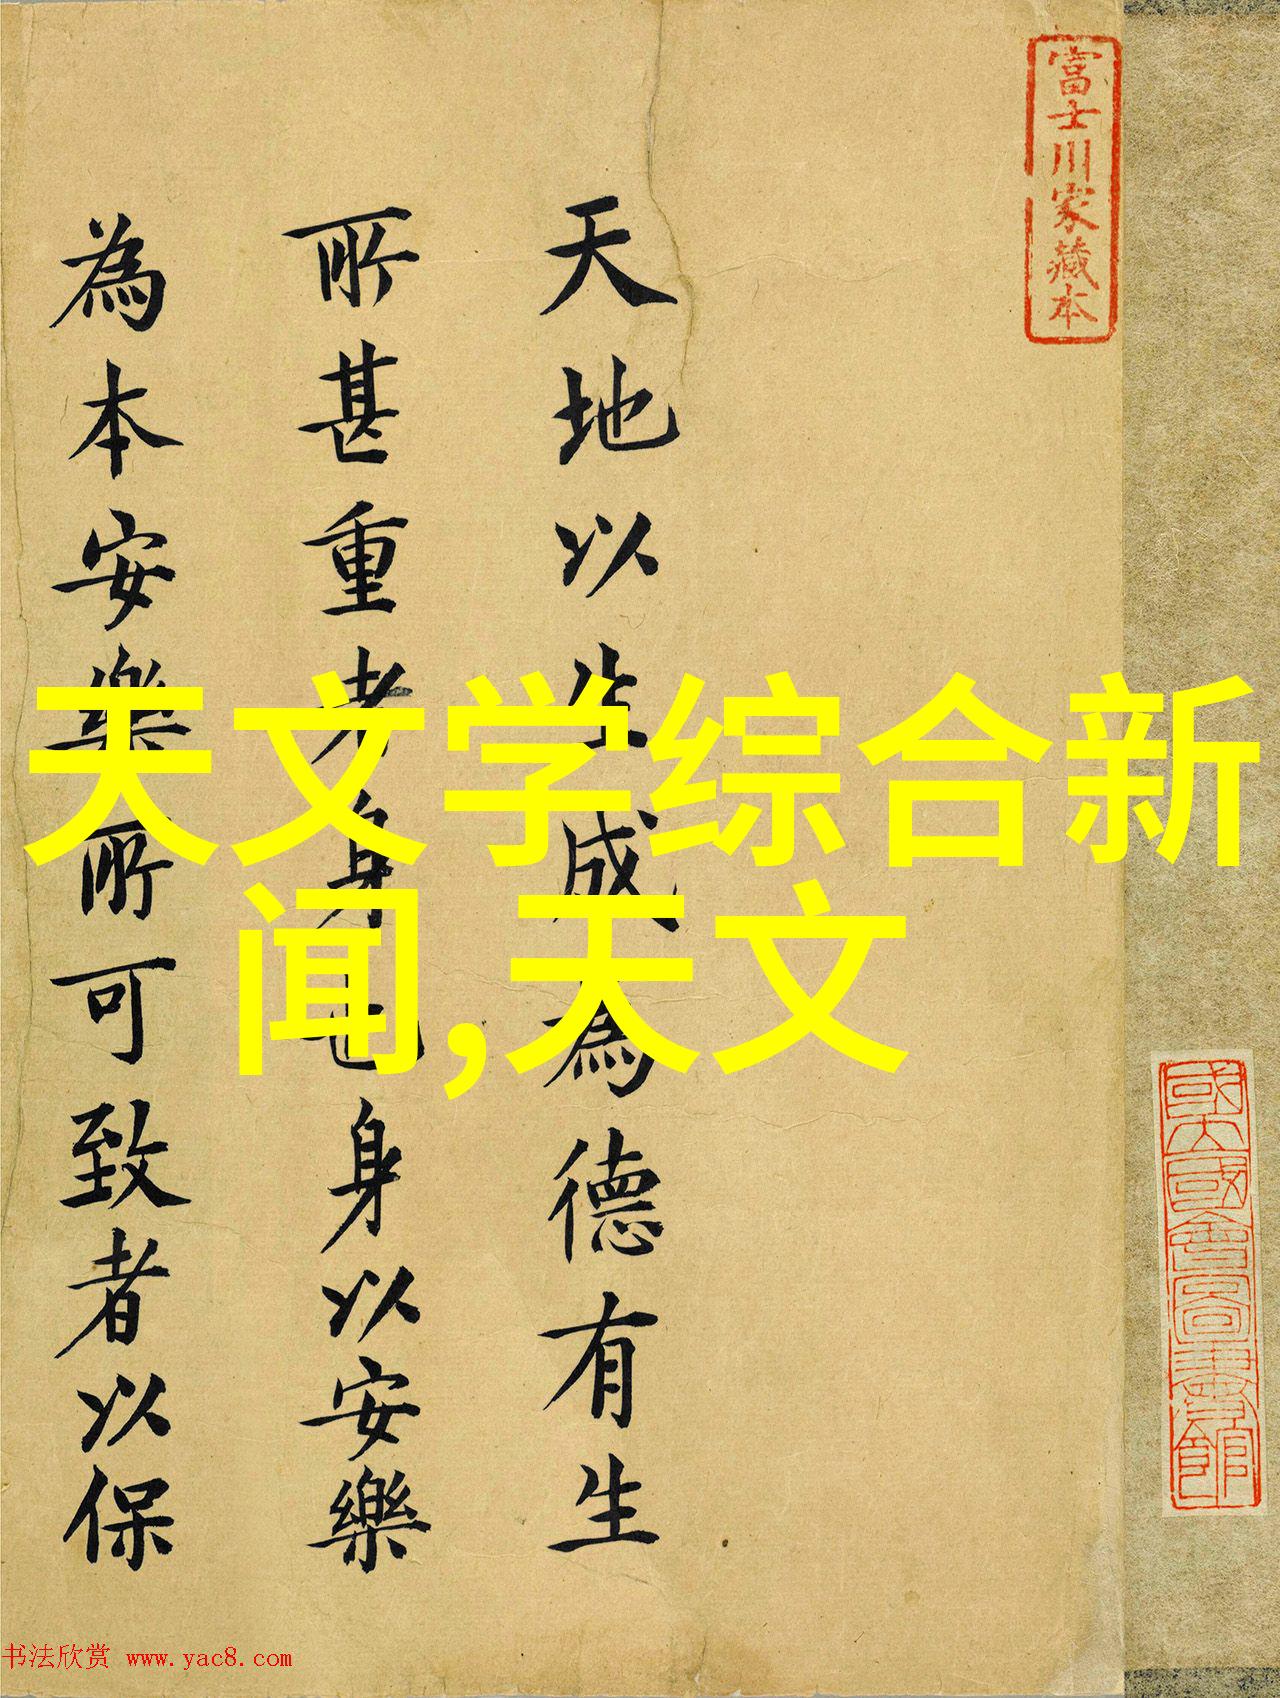 富士川家藏本
國立國會圖書館
天地以生成為德有生
所甚重者身也身以安樂
為本安樂所可致者以保
天文学综合新
闻,天文
书法欣赏 www.yac8.com